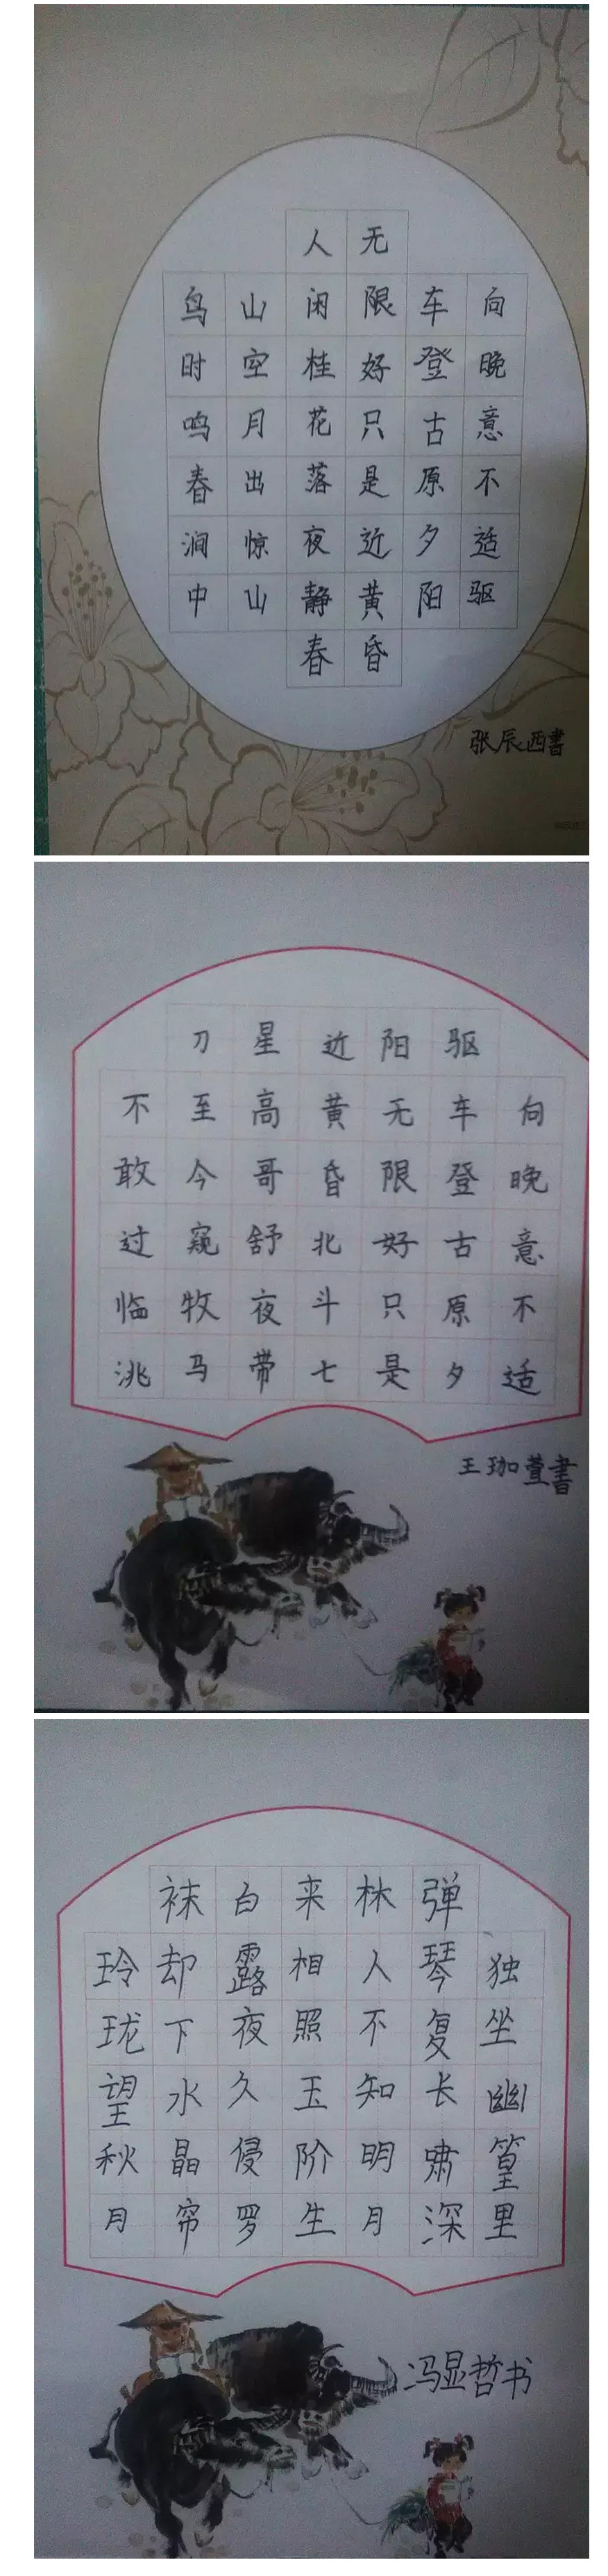 向晚意不适驱
车登古原夕阳
无限好只是近黄昏
人闲桂花落夜静春
山空月出惊山
鸟时鸣春涧中
张辰西書
向晚意不适
驱车登古原夕
阳无限好只是
近黄昏北斗七
星高哥舒夜带
刀至今窥牧马
不敢过临洮
王珈萱書
独坐幽篁里
弹琴复长啸深
林人不知明月
来相照玉阶生
白露夜久侵罗
袜却下水晶帘
玲珑望秋月
冯显哲书